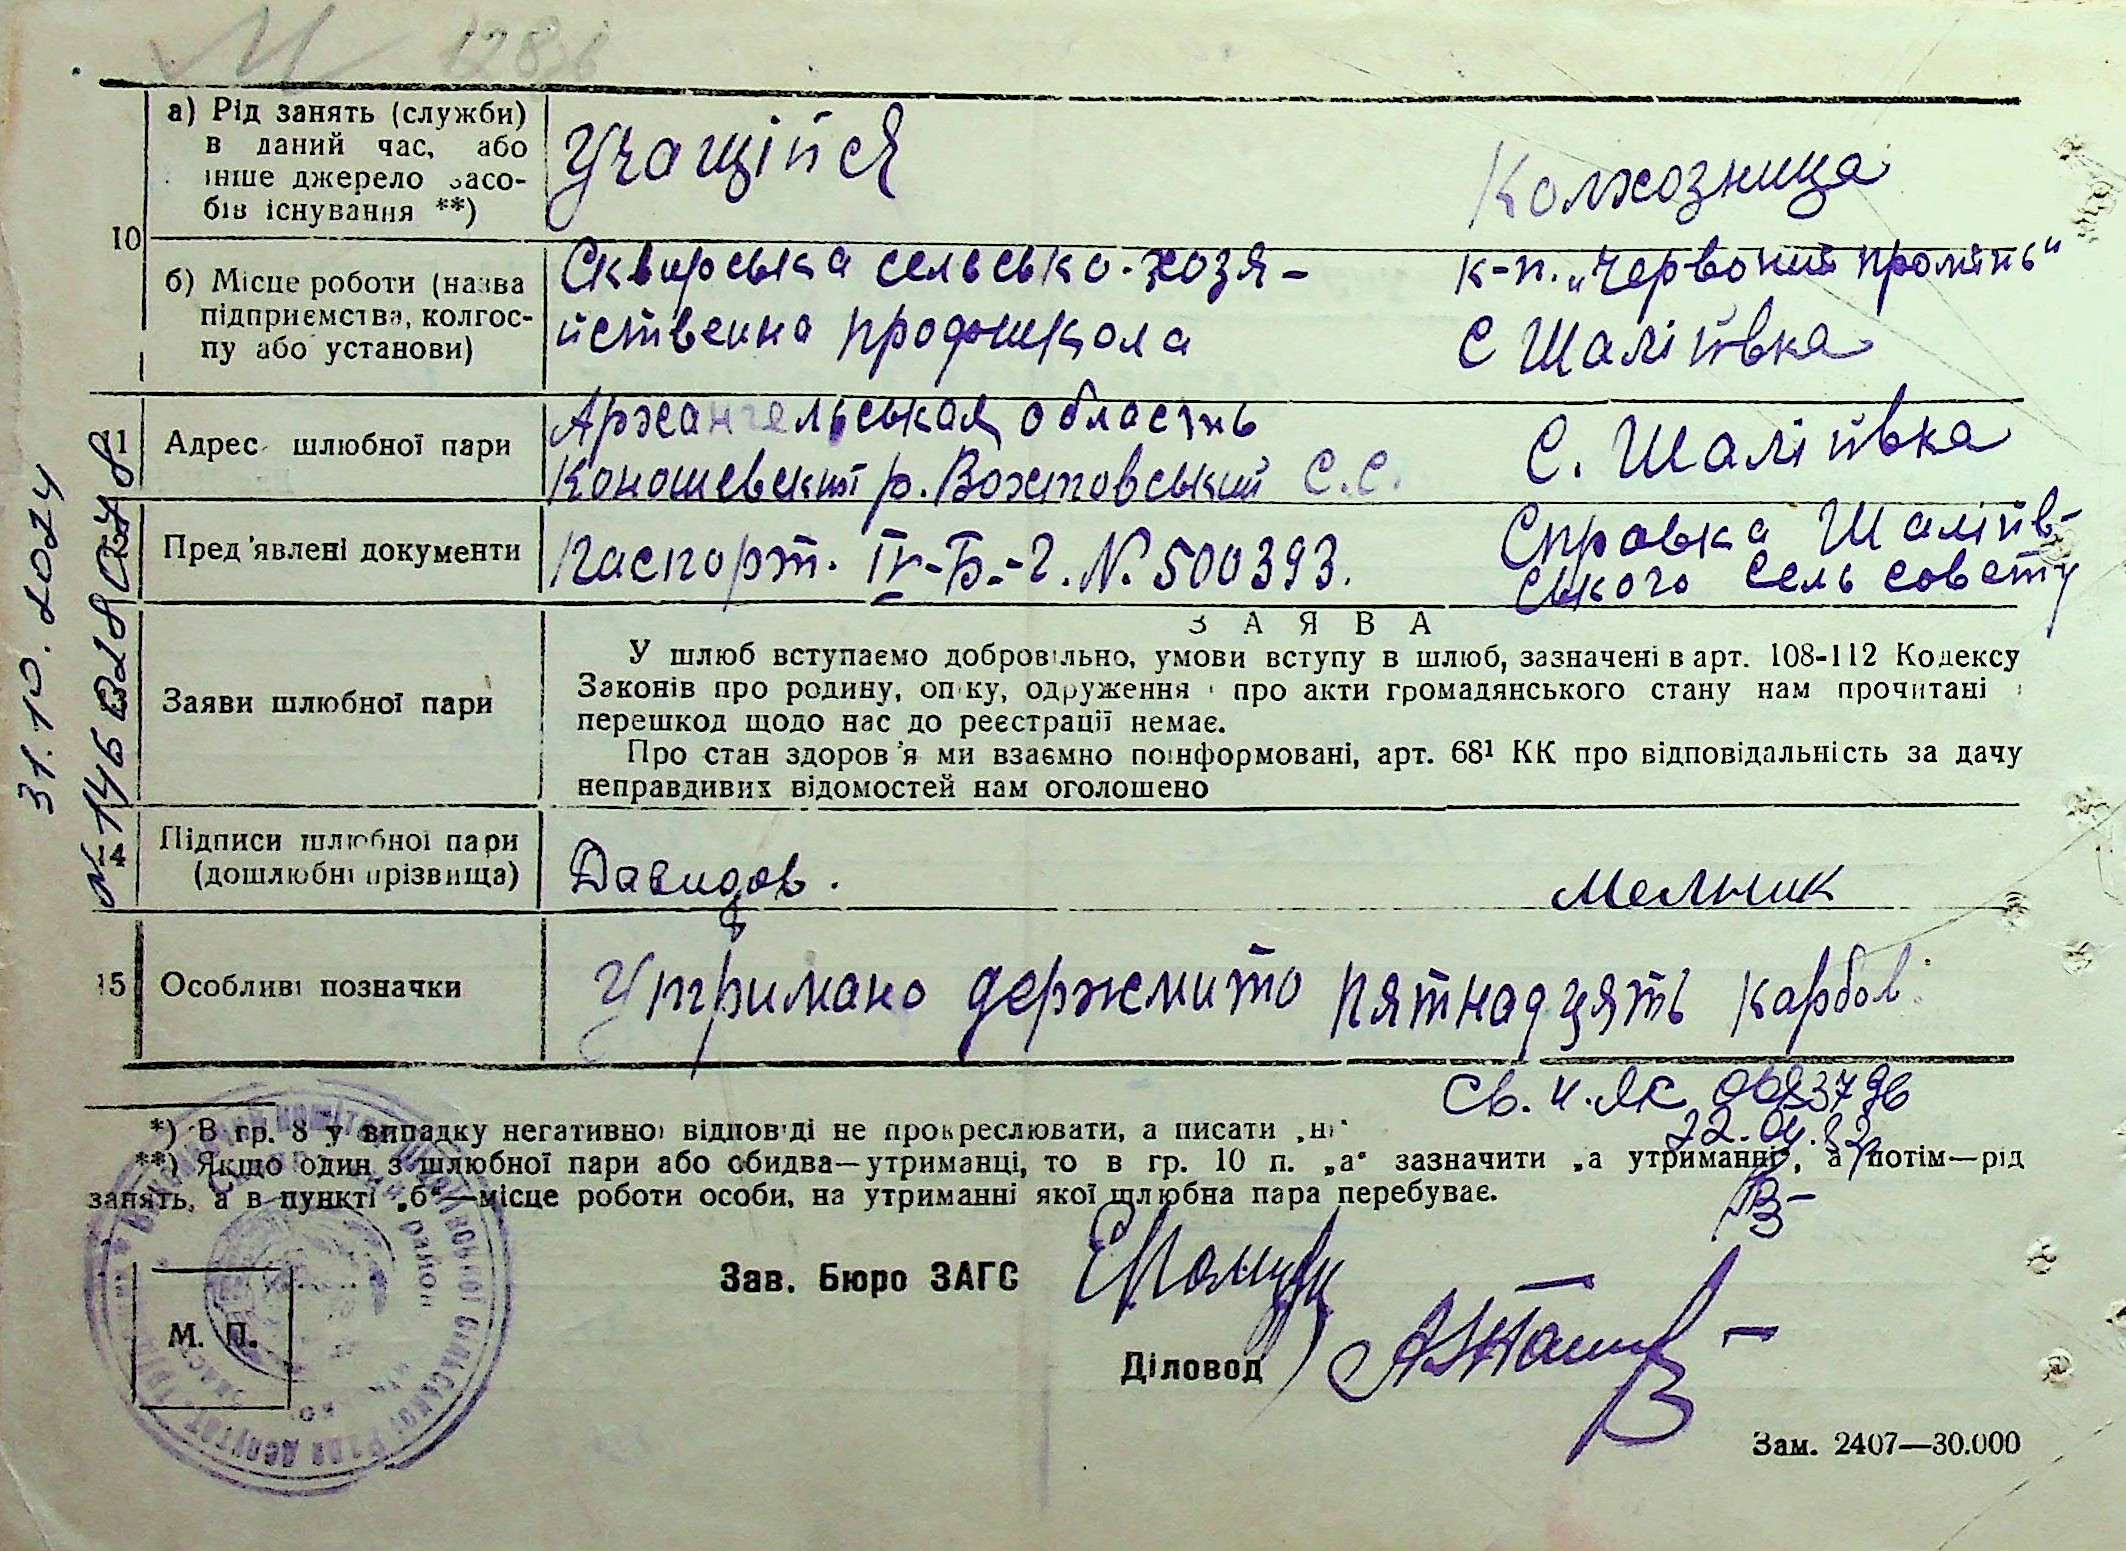 1283в
а) Рід занять (служби)
в даний час, або
інше джерело засо-
бів існування **)
Учащійся
Колхозница
10
б) Місце роботи (назва
підприємства, колгос-
пу або установи)
Сквирська сельсько-хозя-
йственна профшкола
к-п. „Червоний промінь"
С Шаліївка
11
Адрес шлюбної пари
Архангельськая область
Коношевский р. Вохтовський С.С.
С. Шаліївка
Пред'явлені документи
Паспорт. IV-Б.-Г. № 500393.
Справка Шаліїв-
ського сель совету
Заяви шлюбної пари
ЗАЯВА
У шлюб вступаємо добровільно, умови вступу в шлюб, зазначені в арт. 108-112 Кодексу
Законів про родину, опіку, одруження і про акти громадянського стану нам прочитані і
перешкод щодо нас до реєстрації немає.
Про стан здоров'я ми взаємно поінформовані, арт. 68¹ КК про відповідальність за дачу
неправдивих відомостей нам оголошено
14
Підписи шлюбної пари
(дошлюбні прізвища)
Давидов.
Мельник
15
Особливі позначки
Утримано держмито пятнадцять карбов.
31.10.2024
*) В гр. 8 у випадку негативної відповіді не прокреслювати, а писати „ні"
**) Якщо один з шлюбної пари або обидва—утриманці, то в гр. 10 п. „а" зазначити „а утриманні", а потім—рід
занять, а в пункті „б"—місце роботи особи, на утриманні якої шлюбна пара перебуває.
Зав. Бюро ЗАГС
М. П.
Діловод
Зам. 2407—30.000